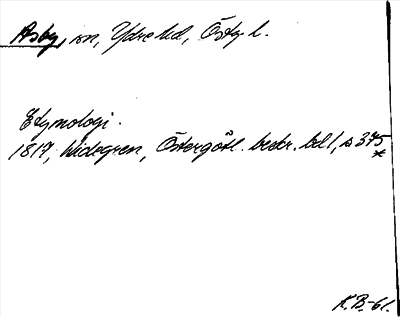 Asby, sn, Ydre hd, Östg. l.
Etymologi.
1817, Widegren, Östergötl. beskr. bd 1, s 375
*
K.B.-61.